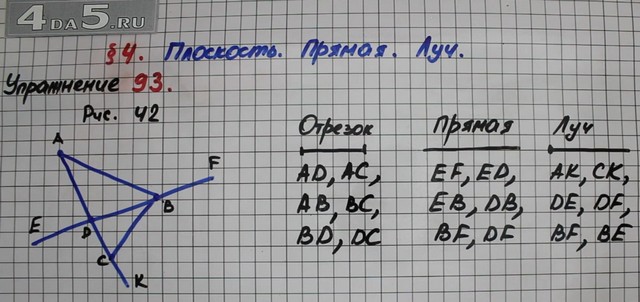 4DA5.RU
§4. Плоскость. Прямая. Луч.
Упражнение 93.
Рис. 42
A
F
B
E
D
C
K
Отрезок
AD, AC,
AB, BC,
BD, DC
Прямая
EF, ED,
EB, DB,
BF, DF
Луч
AK, CK,
DE, DF,
BF, BE